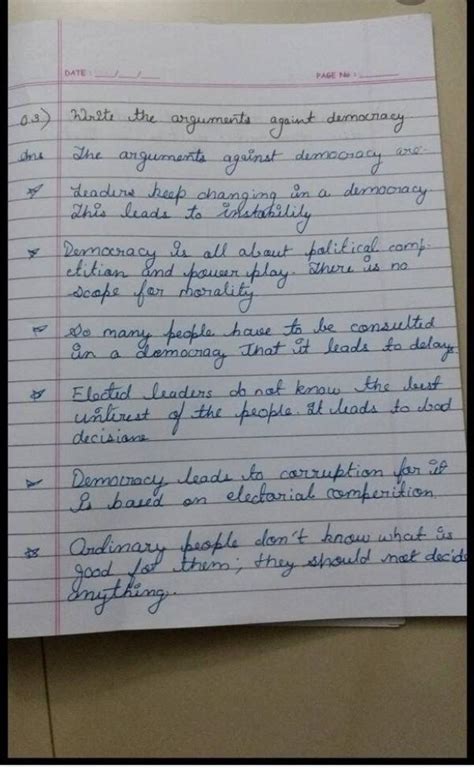 DATE: __/__/__ PAGE No.: ______
Q.3) Write the arguments againt democracy.
Ans The arguments against democracy are-
Leaders keep changing in a democracy
This leads to instability
Democracy is all about political comp-
etition and power play. There is no
scope for morality
So many people have to be consulted
in a democracy That it leads to delays
Elected leaders do not know the best
intirest of the people. It leads to bad
decisions
Democracy leads to corruption for it
is based on electorial comperition
Ordinary people don't know what is
good for them; they should not decide
anything.